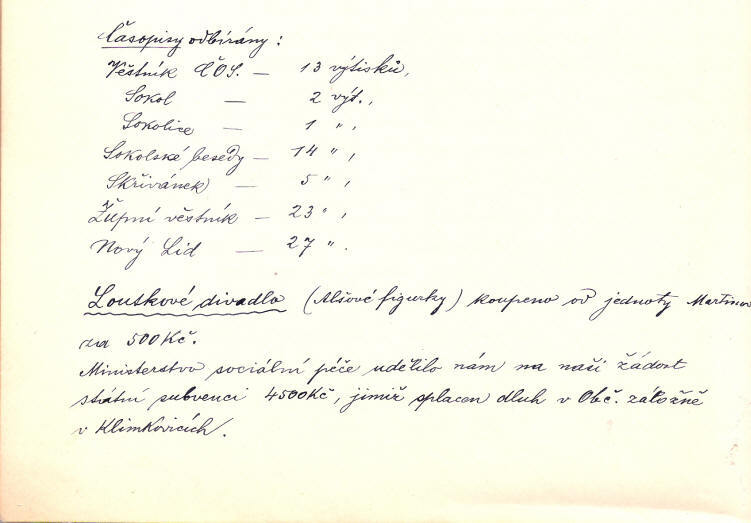 Časopisy odbírány:
Věstník ČOS. — 13 výtisků,
Sokol — 2 výt.,
Sokolice — 1 " ,
Sokolské besedy — 14 " ,
Skřivánek — 5 " ,
Župní věstník — 23 " ,
Nový Lid — 27 " .
Loutkové divadlo (Alšové figurky) koupeno od jednoty Martinov
za 500 Kč.
Ministerstvo sociální péče udělilo nám na naši žádost
státní subvenci 4500 Kč, jimiž splacen dluh v Obč. záložně
v Klimkovicích.